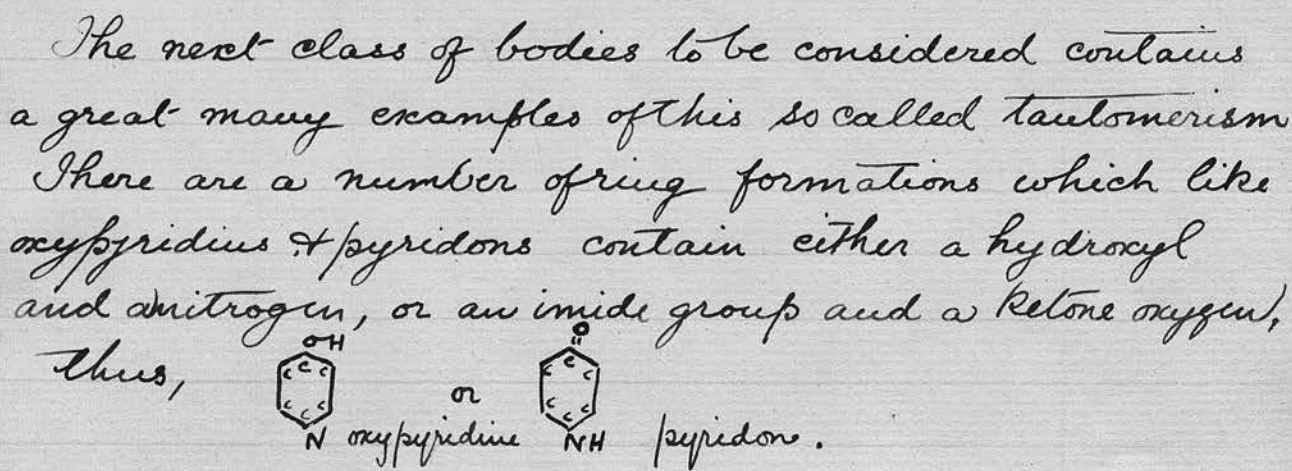 The next class of bodies to be considered contains
a great many examples of this so called tautomerism
There are a number of ring formations which like
oxypyridins & pyridons contain either a hydroxyl
and a nitrogen, or an imide group and a ketone oxygen,
thus, OH C C C C C N oxypyridine or O C C C C C NH pyridon.